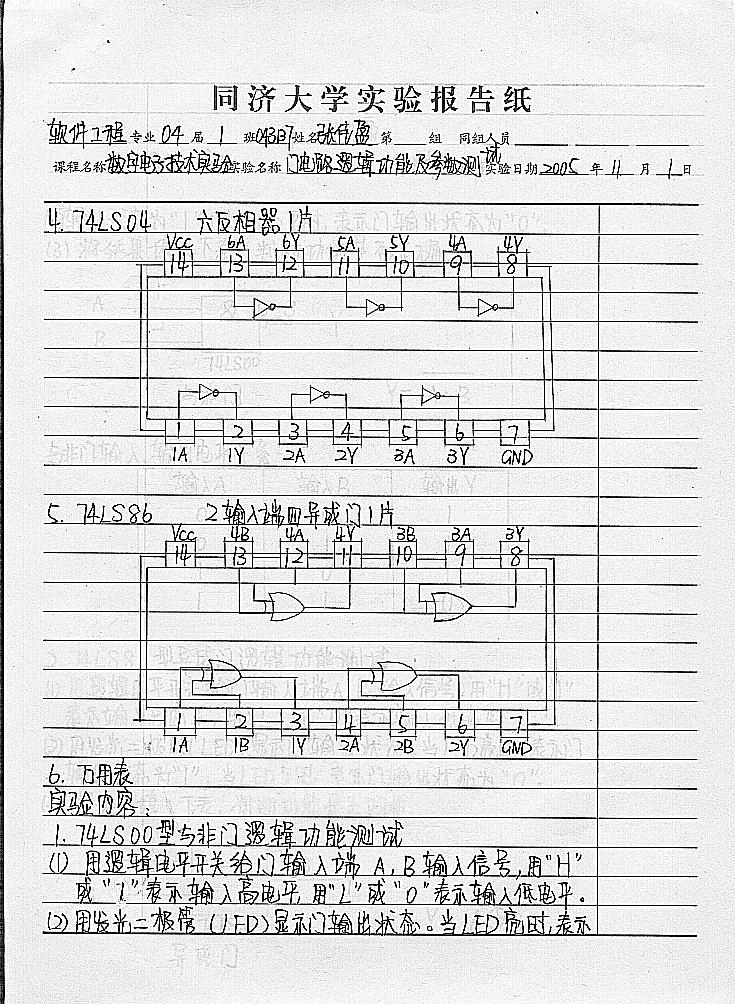 同济大学实验报告纸
软件工程专业04届1班043137姓名张伟盈第 组 同组人员
课程名称数字电子技术实验实验名称门电路逻辑功能及参数测试实验日期2005年11月1日
4. 74LS04 六反相器1片
Vcc 6A 6Y 5A 5Y 4A 4Y
14 13 12 11 10 9 8
1 2 3 4 5 6 7
1A 1Y 2A 2Y 3A 3Y GND
5. 74LS86 2输入端四异或门1片
Vcc 4B 4A 4Y 3B 3A 3Y
14 13 12 11 10 9 8
1 2 3 4 5 6 7
1A 1B 1Y 2A 2B 2Y GND
6. 万用表
实验内容:
1. 74LS00型与非门逻辑功能测试
(1) 用逻辑电平开关给门输入端 A, B 输入信号,用"H"
或"1"表示输入高电平,用"L"或"0"表示输入低电平。
(2)用发光二极管(LED)显示门输出状态。当LED亮时,表示